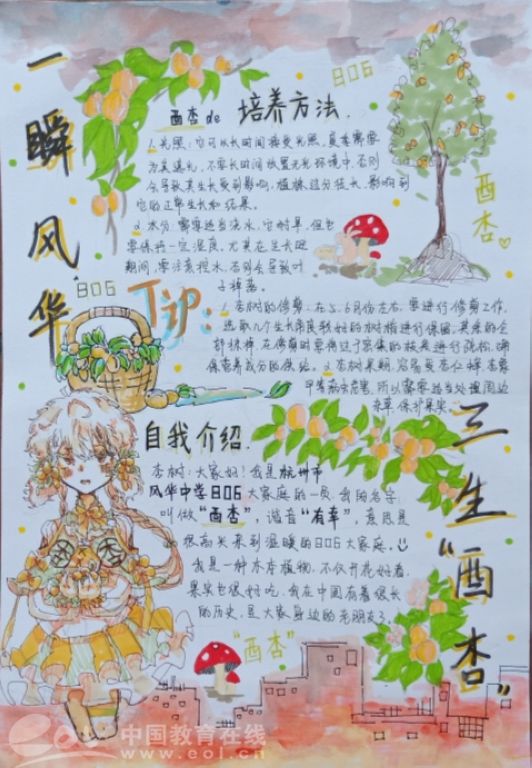 一瞬风华
806
酉杏de 培养方法.
1.光照:它可以长时间接受光照,夏季需要
为其遮光,不要长时间放置无光环境中,否则
会导致其生长受到影响,植株过分徒长,影响到
它的正常生长和结果。
2.水分:需要适当浇水,它耐旱,但也
要保持一定湿度,尤其在生长旺
期间,要注意控水,否则会导致叶
子掉落。
酉杏
806
Tip:
1.杏树的修剪:在5、6月份左右,要进行修剪工作,
选取几个生长角度较好的树梢进行保留,其余的全
部抹掉,在修剪时要将过于密集的枝条进行疏松,确
保营养成分的供给。2.杏树果期,容易受杏仁蜂、杏象
甲等病虫危害,所以需要适当处理周边
杂草,保护果实。
自我介绍.
杏树:大家好!我是杭州市
风华中学806大家庭的一员,我的名字
叫做“酉杏”,谐音“有幸”,意思是
很高兴来到温暖的806大家庭。
我是一种木本植物,不仅开花好看,
果实也很好吃,我在中国有着很长
的历史,是大家身边的老朋友了。
三生“酉杏”
酉杏
“酉杏”
eol 中国教育在线
www.eol.cn